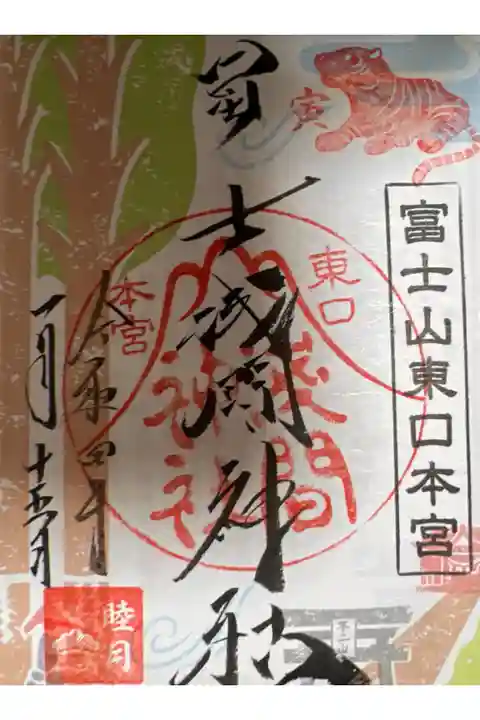 寅
富士山東口本宮
冨士浅間神社
東口
本宮
淺間
神社
令和四年
一月十五日
睦月